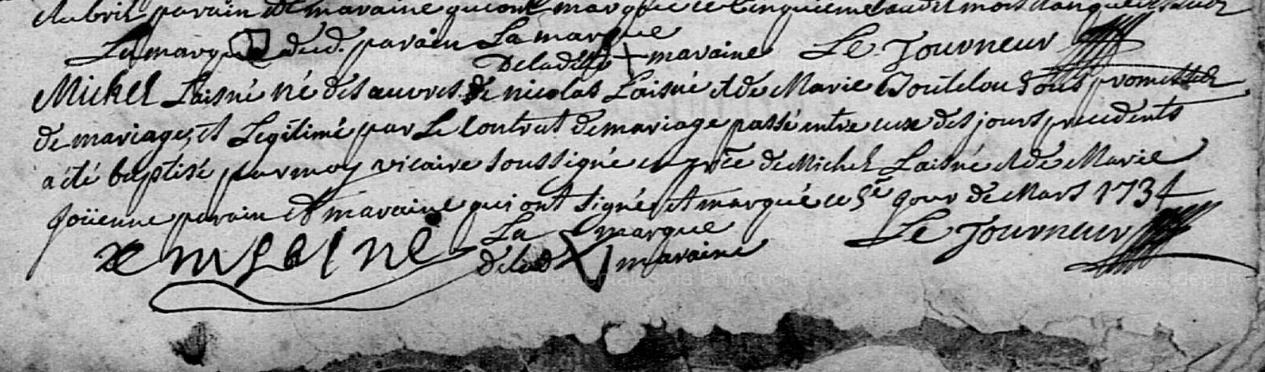 parain et maraine qui ont marqué ce cinquieme dudit mois
La marque dud. parain La marque
De ladite maraine Le Tourneur
Michel Laisné né des œuvres de nicolas Laisné et de Marie sous promesse
de mariage, et Legitimé par Le Contrat de mariage passé entre eux des jours precedents
a été baptisé par moy vicaire soussigné en prce de Michel Laisné et de Marie
Joüenne parain et maraine qui ont signé et marqué ce 5e jour de Mars 1734
m laine La marque
de lad maraine Le Tourneur